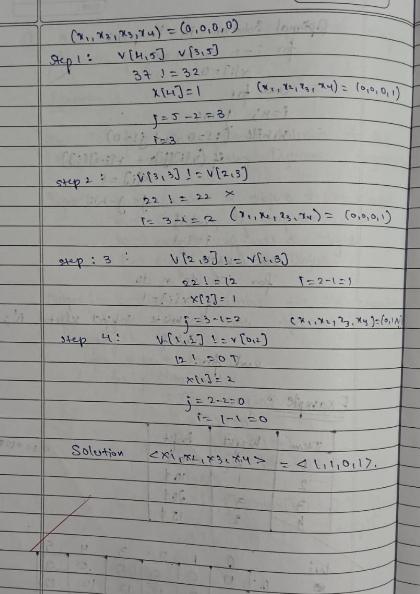 (x1, x2, x3, x4) = (0,0,0,0)
Step 1 : V[4,5] V[3,5]
37 ! = 32
x[4] = 1 (x1, x2, x3, x4) = (0,0,0,1)
j = 5 - 2 = 3
i = 3
step 2 : V[3,3] ! = V[2,3]
22 ! = 22 ×
i = 3-1 = 2 (x1, x2, x3, x4) = (0,0,0,1)
step : 3 : V[2,3] ! = V[1,3]
22 ! = 12 i = 2-1 = 1
x[2] = 1
j = 3-1 = 2 (x1, x2, x3, x4) = (0,1,
step 4 : V[1,2] ! = V[0,2]
12 ! = 0 T
x[1] = 2
j = 2-2 = 0
i = 1-1 = 0
Solution <x1, x2, x3, x4> = < 1,1,0,1>.